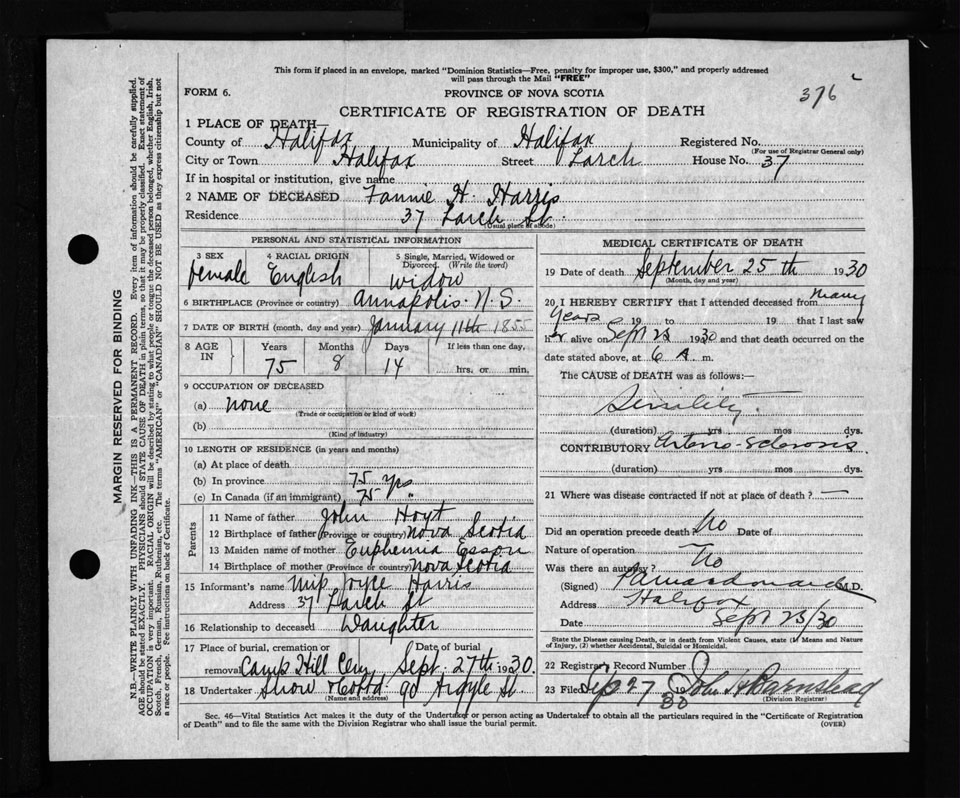 This form if placed in an envelope, marked "Dominion Statistics—Free, penalty for improper use, $300," and properly addressed
will pass through the Mail "FREE"
376
FORM 6. PROVINCE OF NOVA SCOTIA
CERTIFICATE OF REGISTRATION OF DEATH
1 PLACE OF DEATH—
County of Halifax Municipality of Halifax Registered No.
(For use of Registrar General only)
City or Town Halifax Street Larch House No. 37
If in hospital or institution, give name
2 NAME OF DECEASED Fannie H. Harris
Residence 37 Larch St.
(Usual place of abode)
PERSONAL AND STATISTICAL INFORMATION
3 SEX 4 RACIAL ORIGIN 5 Single, Married, Widowed or
Divorced. (Write the word)
female English widow
6 BIRTHPLACE (Province or country) Annapolis. N.S.
7 DATE OF BIRTH (month, day and year) January 11th 1855
8 AGE IN Years Months Days If less than one day,
75 8 14 hrs. or min.
9 OCCUPATION OF DECEASED
(a) none
(Trade or occupation or kind of work)
(b)
(Kind of industry)
10 LENGTH OF RESIDENCE (in years and months)
(a) At place of death
(b) In province 75 yrs
(c) In Canada (if an immigrant) 75 "
Parents
11 Name of father John Hoyt
12 Birthplace of father (Province or country) Nova Scotia
13 Maiden name of mother Euphemia Esson
14 Birthplace of mother (Province or country) Nova Scotia
15 Informant's name Miss Joyce Harris
Address 37 Larch St
16 Relationship to deceased Daughter
17 Place of burial, cremation or Date of burial
removal Camp Hill Cem Sept. 27th 1930.
18 Undertaker Snow & Co Ltd 90 Argyle St.
(Name and address)
MEDICAL CERTIFICATE OF DEATH
19 Date of death September 25th 1930
(Month, day and year)
20 I HEREBY CERTIFY that I attended deceased from many
years 19 to 19 that I last saw
her alive on Sept 1930 and that death occurred on the
date stated above, at 6 A. m.
The CAUSE of DEATH was as follows:—
Senility.
(duration) yrs mos dys.
CONTRIBUTORY Arterio-Sclerosis
(duration) yrs mos dys.
21 Where was disease contracted if not at place of death? —
Did an operation precede death? No Date of
Nature of operation
Was there an autopsy? No
(Signed) M.D.
Address Halifax
Date Sept 25/30
State the Disease causing Death, or in death from Violent Causes, state (1) Means and Nature
of Injury, (2) whether Accidental, Suicidal or Homicidal.
22 Registrar's Record Number
23 Filed Sep 27 1930 John H Barnstead
(Division Registrar)
Sec. 46—Vital Statistics Act makes it the duty of the Undertaker or person acting as Undertaker to obtain all the particulars required in the "Certificate of Registration
of Death" and to file the same with the Division Registrar who shall issue the burial permit. (OVER)
MARGIN RESERVED FOR BINDING
N.B.—WRITE PLAINLY WITH UNFADING INK—THIS IS A PERMANENT RECORD. Every item of information should be carefully supplied.
AGE should be stated EXACTLY. PHYSICIANS should STATE CAUSE OF DEATH in plain terms, so that it may be properly classified. Exact statement of
OCCUPATION is very important. RACIAL ORIGIN will be described by stating to what people or tongue the deceased person belonged, whether English, Irish,
Scotch, French, German, Russian, Ruthenian, etc. The terms "AMERICAN" or "CANADIAN" SHOULD NOT BE USED as they express citizenship but not
a race or people. See instructions on back of Certificate.